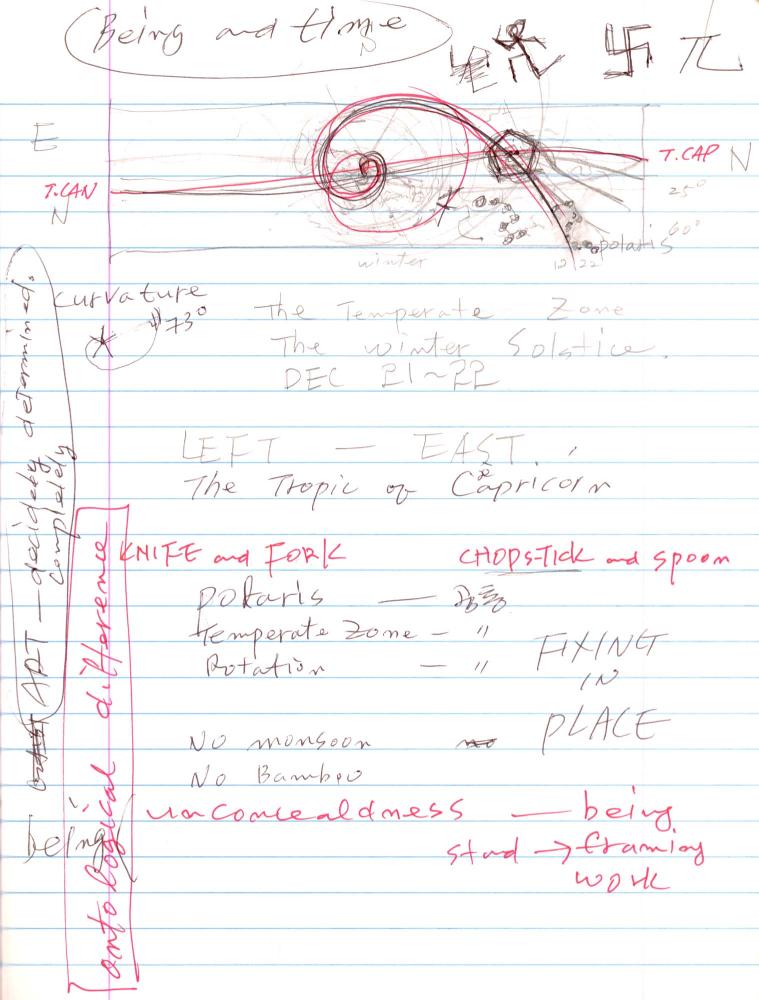 Being and time
N
卐 π
E
T.CAN
N
T.CAP N
25°
60°
polaris
winter
12/22
curvature
73°
The Temperate Zone
The winter Solstice.
DEC 21~22
LEFT — EAST.
The Tropic of Capricorn
KNIFE and FORK CHOPSTICK and spoon
polaris — 공통
Temperate Zone — "
Rotation — "
FIXING
IN
PLACE
No monsoon
No Bamboo
unconcealdness — being
stud → framing
work
ART — decidely determined.
completely
ontological difference
being